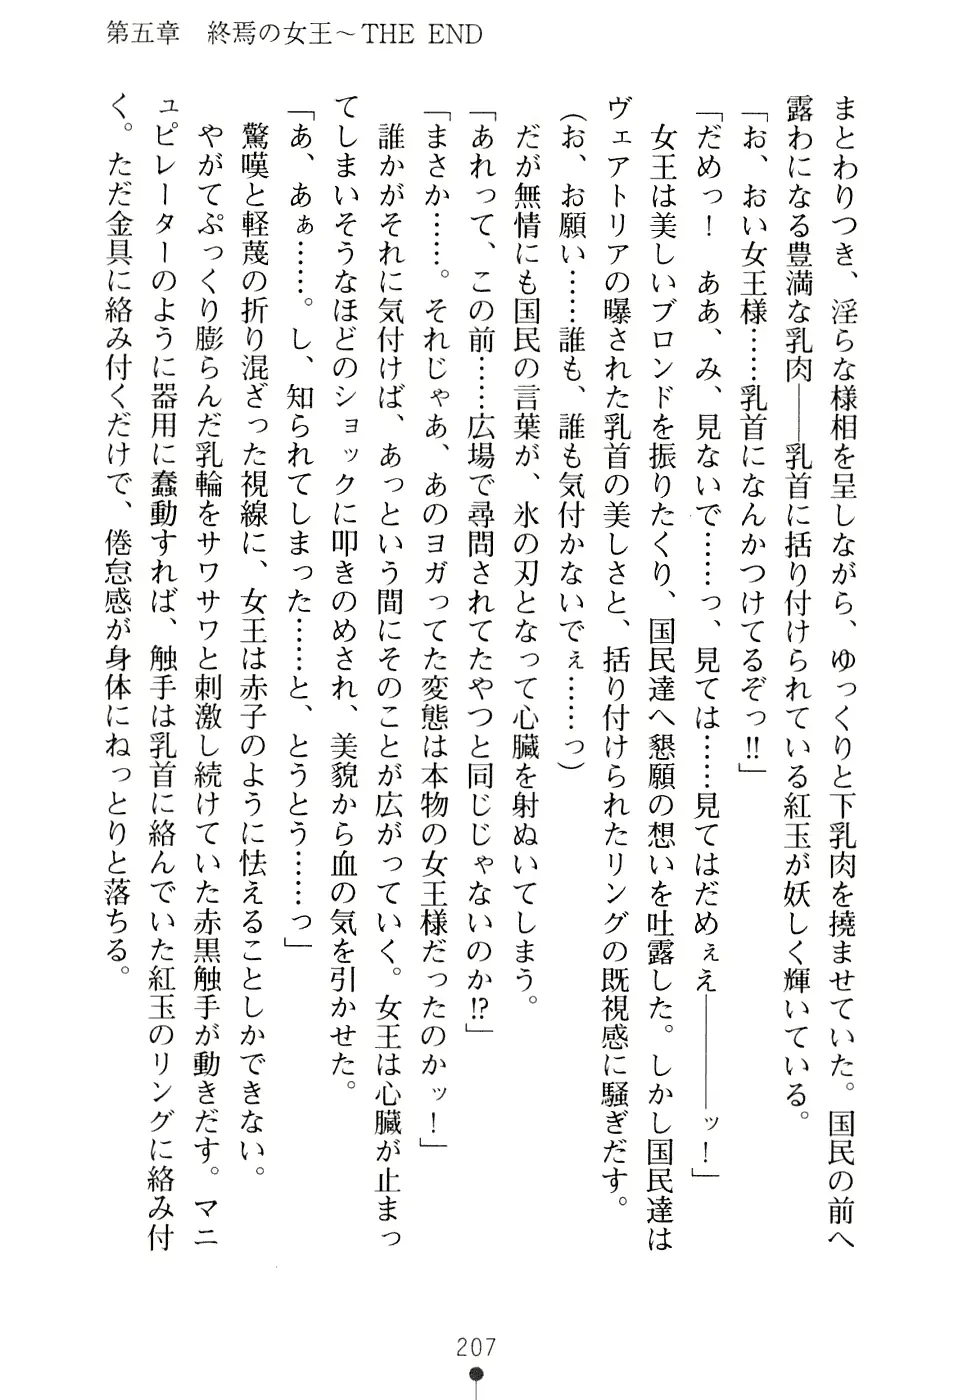 第五章　終焉の女王～THE END
まとわりつき、淫らな様相を呈しながら、ゆっくりと下乳肉を撓ませていた。国民の前へ
露わになる豊満な乳肉――乳首に括り付けられている紅玉が妖しく輝いている。
「お、おい女王様……乳首になんかつけてるぞっ!!」
「だめっ！　ああ、み、見ないで……っ、見ては……見てはだめぇえ――――ッ！」
　女王は美しいブロンドを振りたくり、国民達へ懇願の想いを吐露した。しかし国民達は
ヴェアトリアの曝された乳首の美しさと、括り付けられたリングの既視感に騒ぎだす。
（お、お願い……誰も、誰も気付かないでぇ……っ）
　だが無情にも国民の言葉が、氷の刃となって心臓を射ぬいてしまう。
「あれって、この前……広場で尋問されてたやつと同じじゃないのか!?」
「まさか……。それじゃあ、あのヨガってた変態は本物の女王様だったのかッ！」
　誰かがそれに気付けば、あっという間にそのことが広がっていく。女王は心臓が止まっ
てしまいそうなほどのショックに叩きのめされ、美貌から血の気を引かせた。
「あ、あぁ……。し、知られてしまった……と、とうとう……っ」
　驚嘆と軽蔑の折り混ざった視線に、女王は赤子のように怯えることしかできない。
　やがてぷっくり膨らんだ乳輪をサワサワと刺激し続けていた赤黒触手が動きだす。マニ
ュピレーターのように器用に蠢動すれば、触手は乳首に絡んでいた紅玉のリングに絡み付
く。ただ金具に絡み付くだけで、倦怠感が身体にねっとりと落ちる。
207